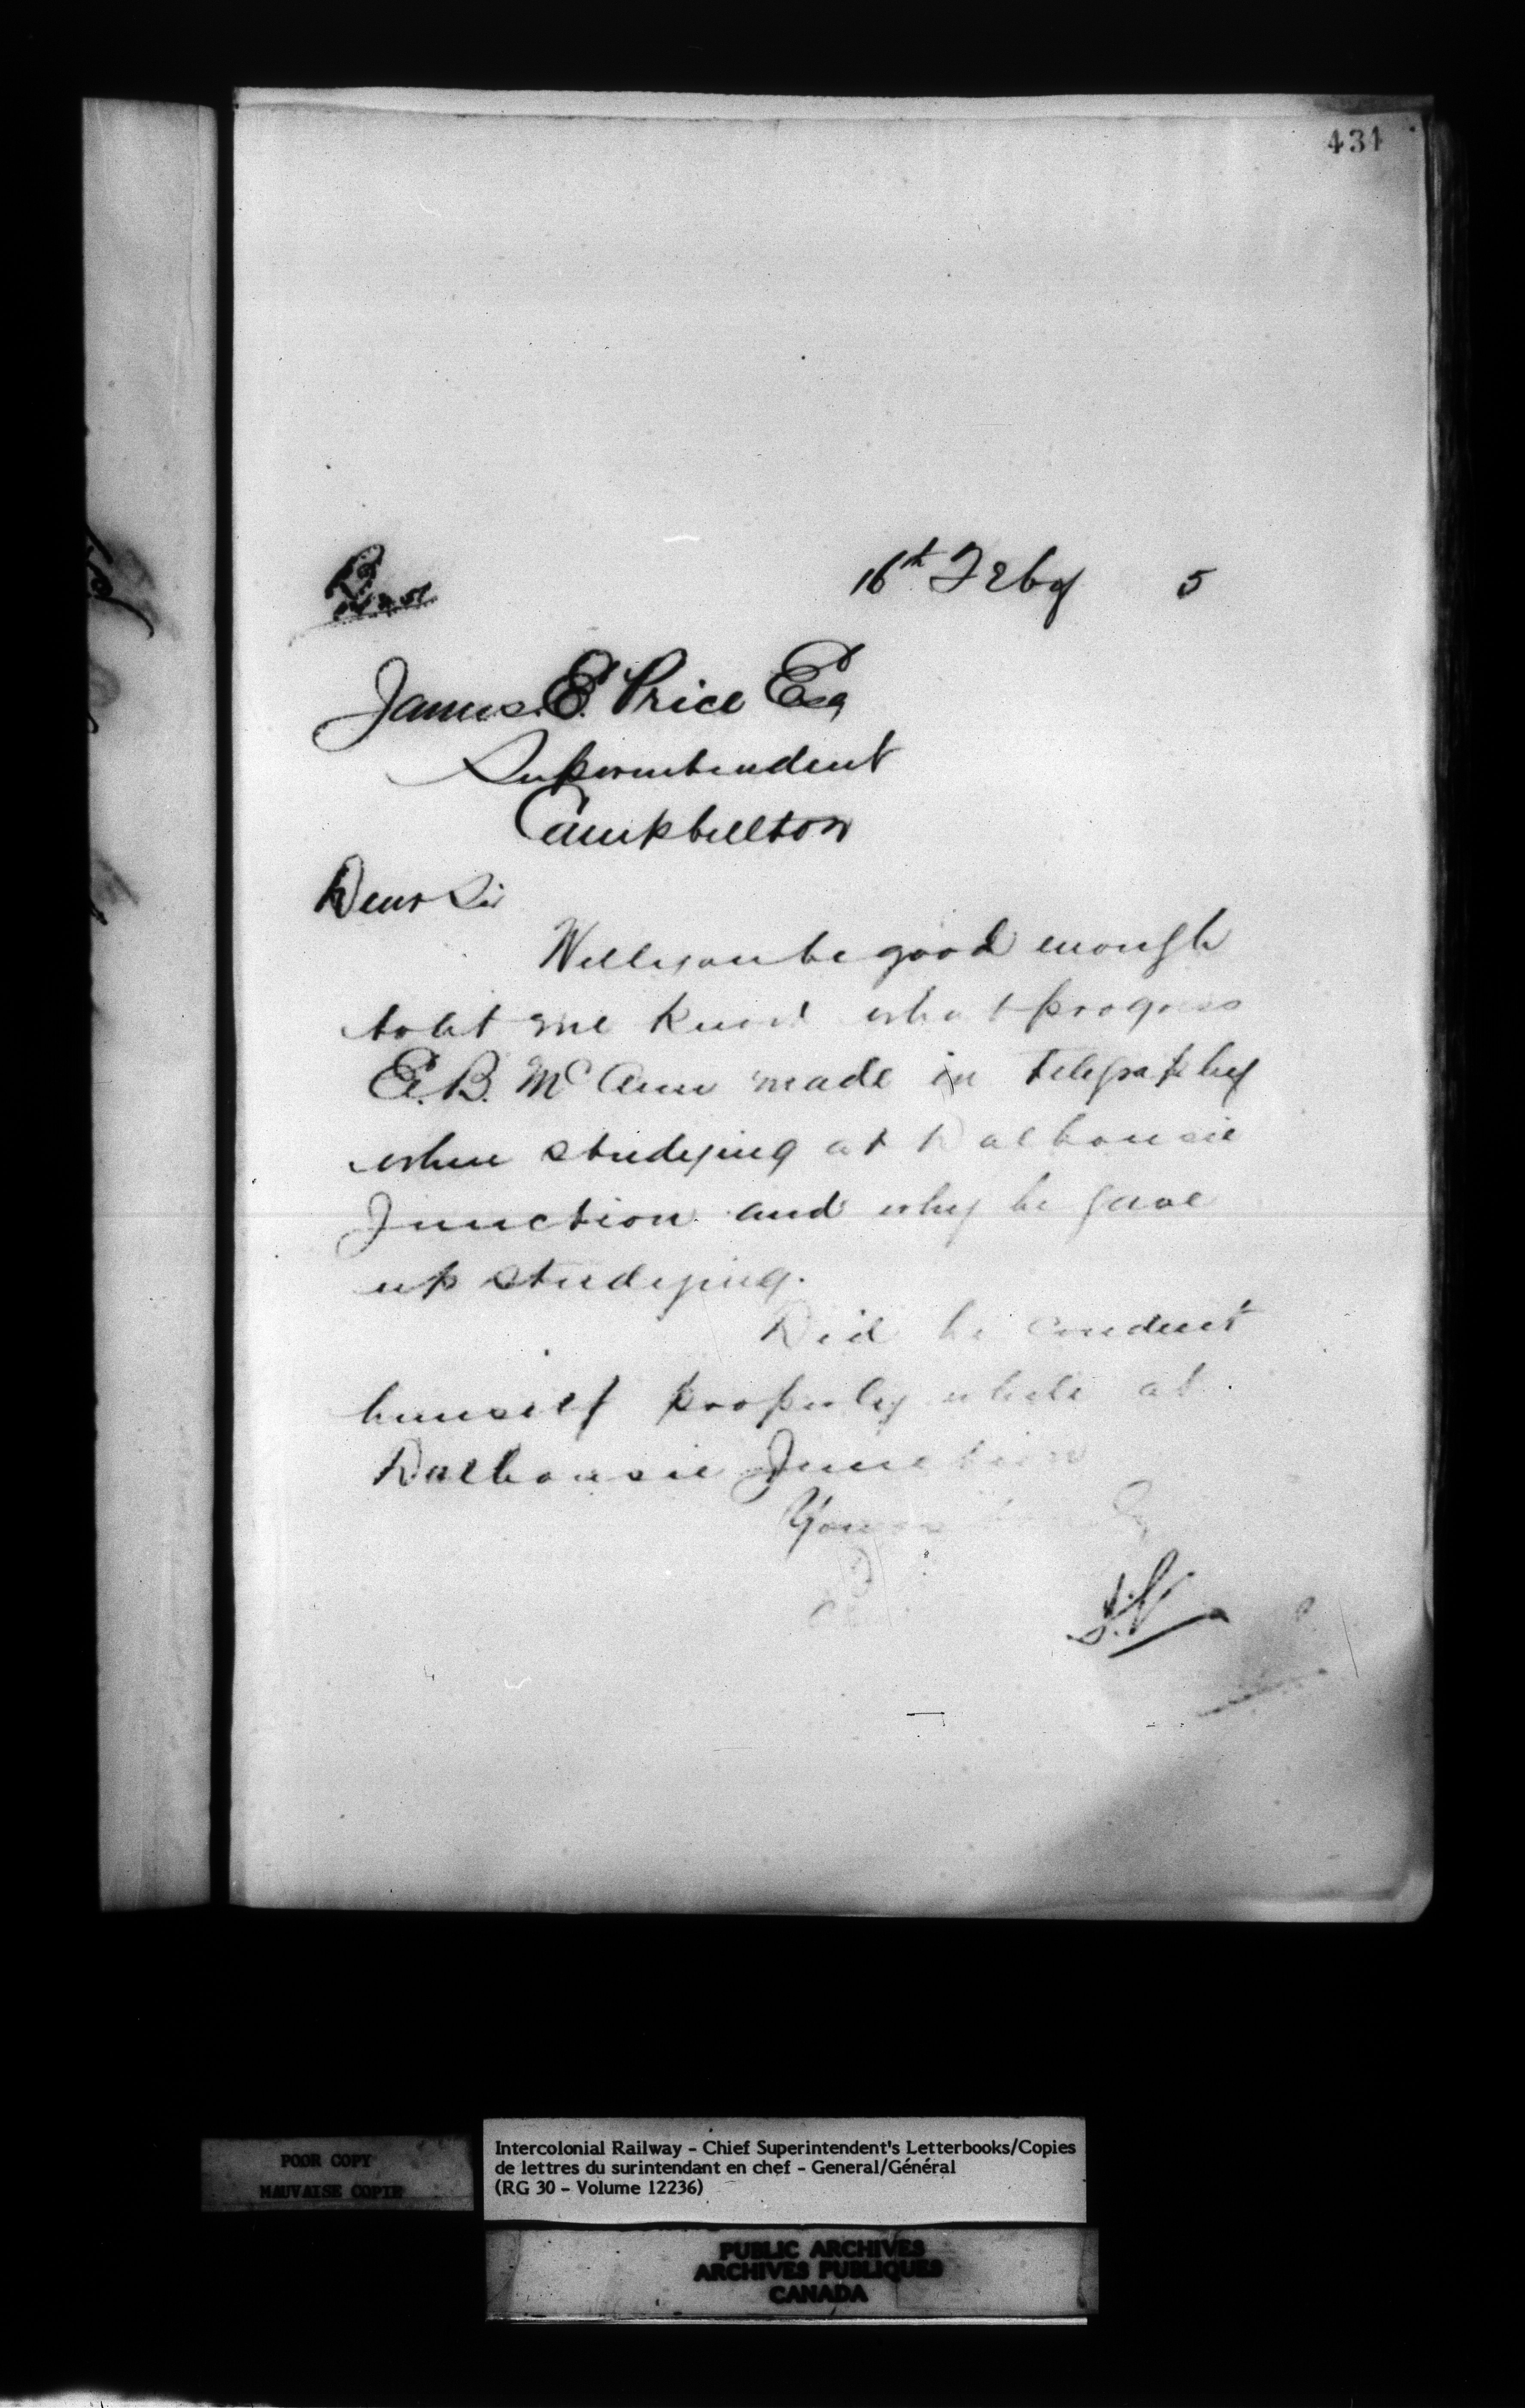 431
16th Feby 5
James. E. Price Esq
Superintendent
Campbellton
Dear Sir
Will you be good enough
to let me know what progress
E. B. McCann made in telegraphy
when studying at Dalhousie
Junction and why he gave
up studying.
Did he conduct
himself properly while at
Dalhousie Junction
Yours
POOR COPY
MAUVAISE COPIE
Intercolonial Railway - Chief Superintendent's Letterbooks/Copies
de lettres du surintendant en chef - General/Général
(RG 30 - Volume 12236)
PUBLIC ARCHIVES
ARCHIVES PUBLIQUES
CANADA